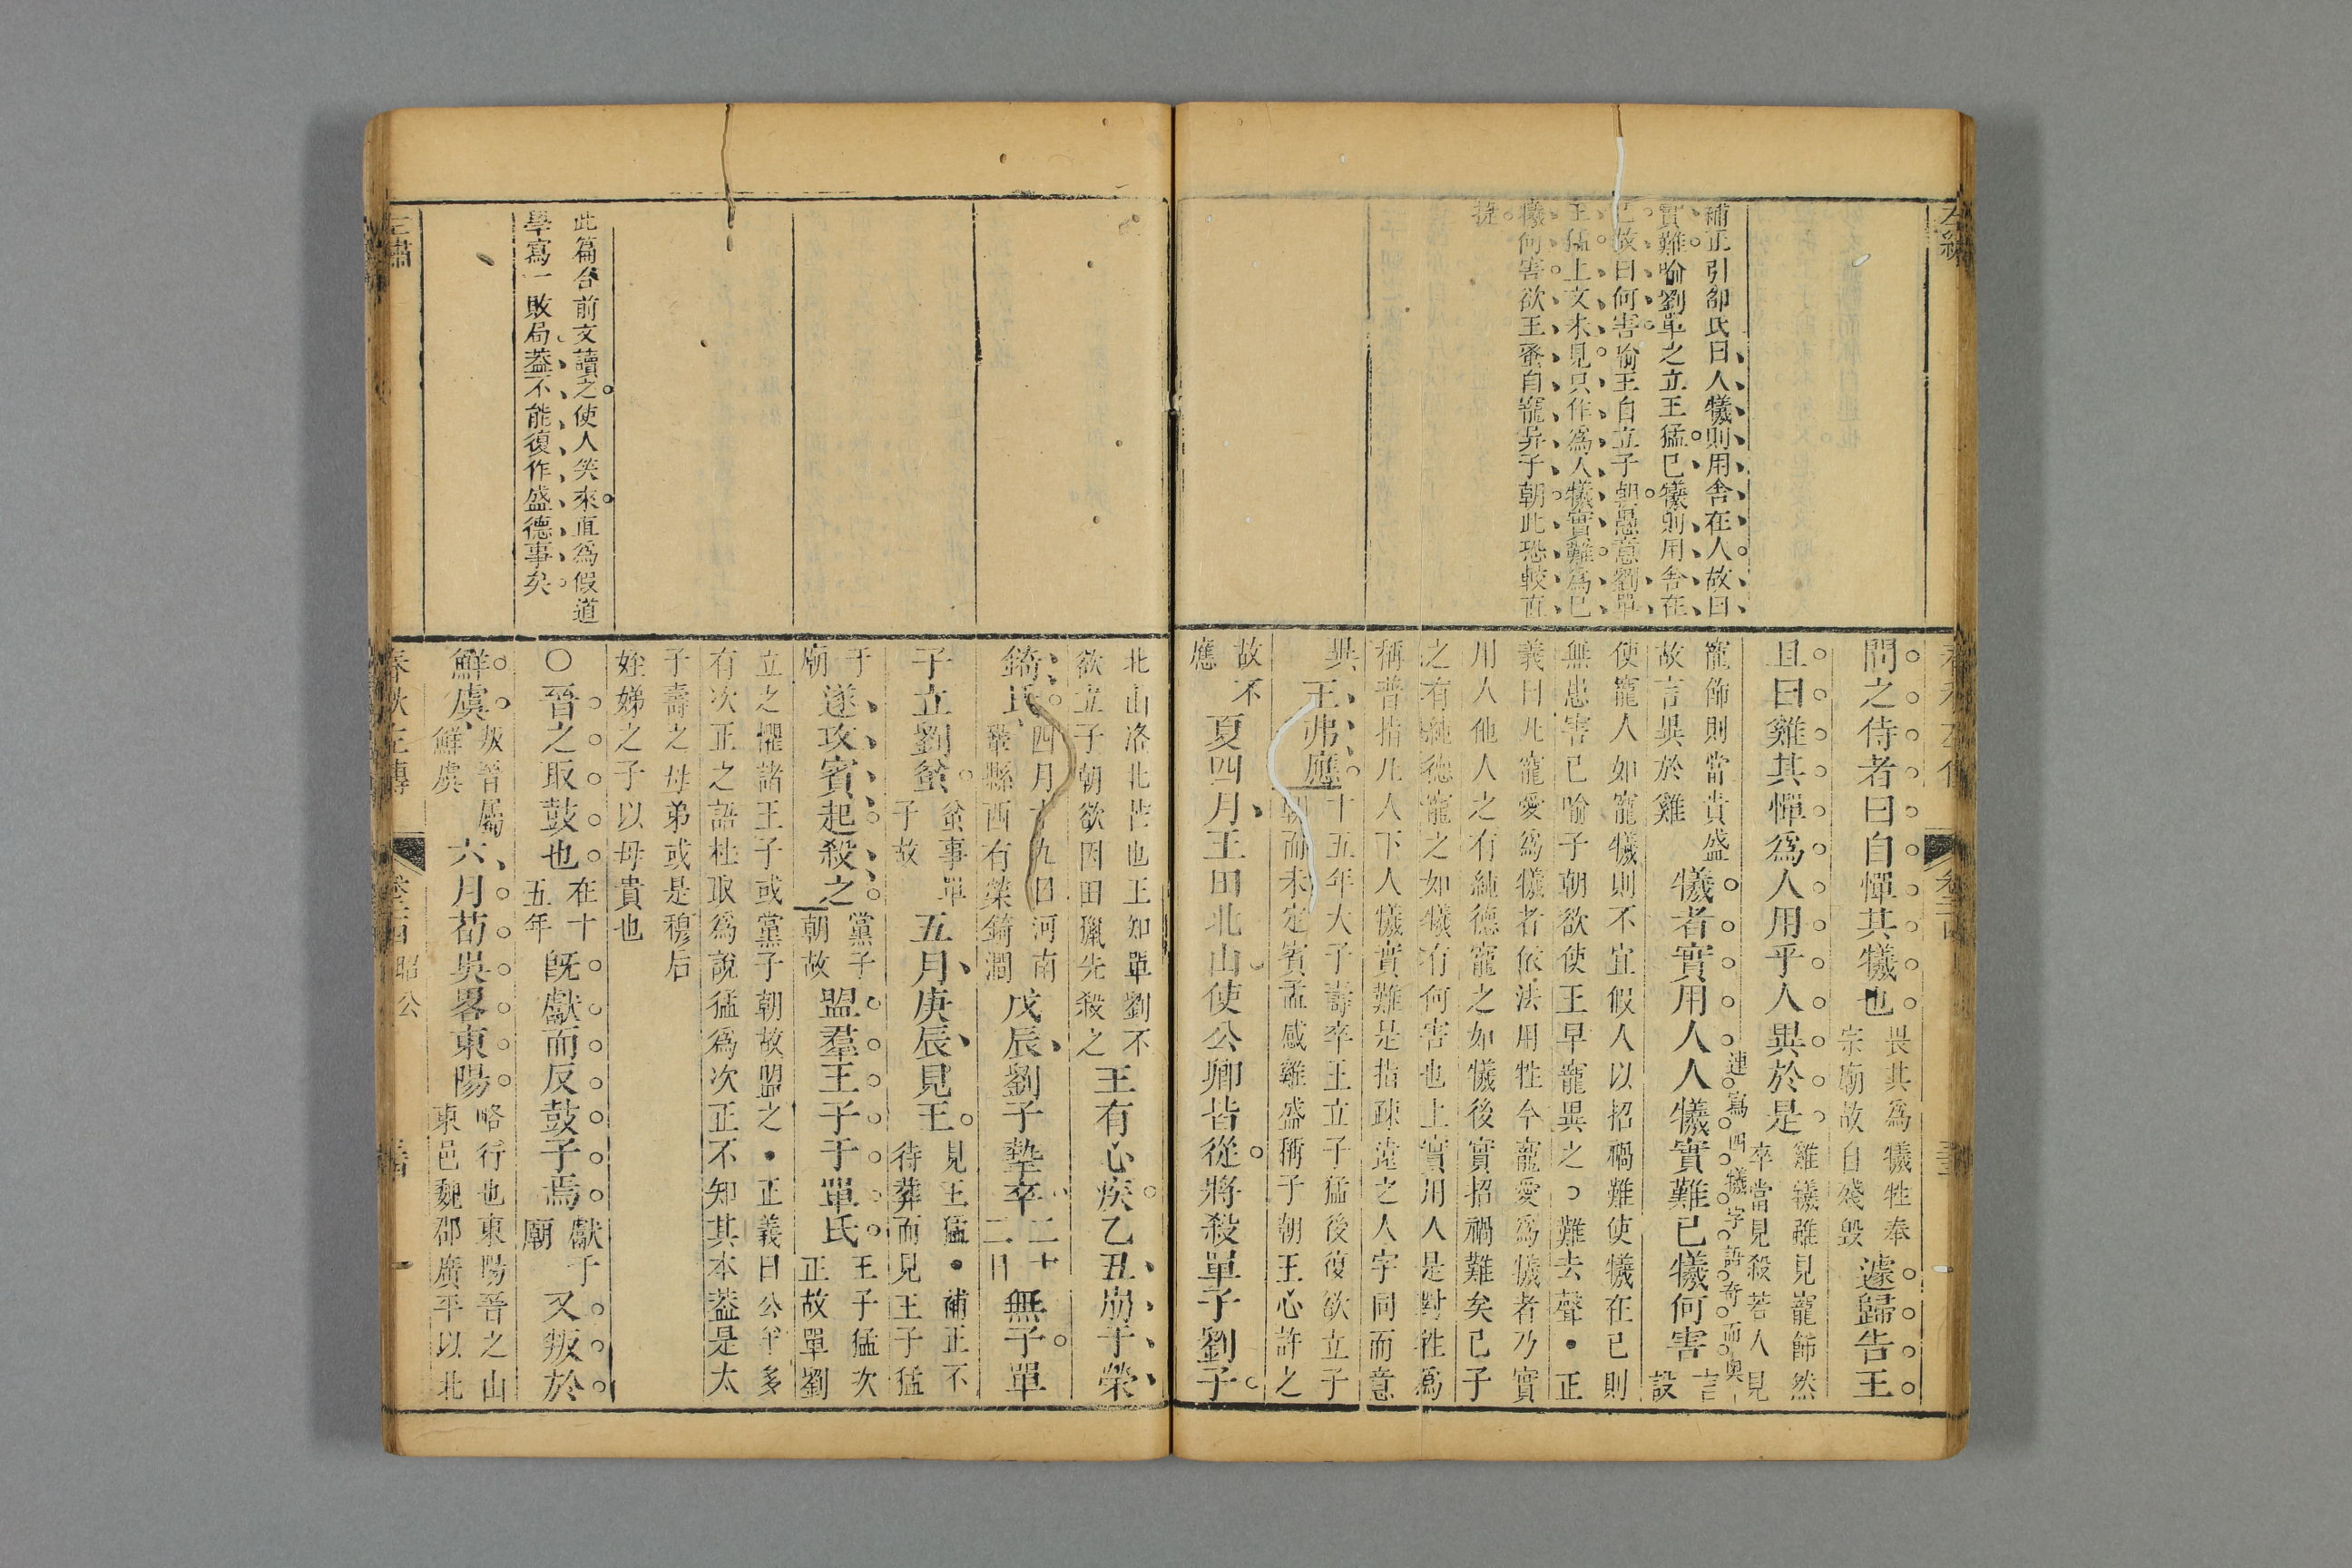 補正引邵氏曰人犧則用舍在人故曰
實難喻劉單之立王猛已犧則用舍在
已故曰何害喻王自立子朝愚意劉單
王猛上文未見只作爲人犧實難爲已
犧何害欲王蚤自寵異子朝此恐較直
捷
問之侍者曰自憚其犧也畏其爲犧牲奉宗廟故自殘毀遽歸告王
且曰雞其憚爲人用乎人異於是雞犧雖見寵飾然卒當見殺若人見
寵飾則當貴盛故言異於雞犧者實用人人犧實難已犧何害言設
連寫四犧字語奇而奧
使寵人如寵犧則不宜假人以招禍難使犧在已則
無患害已喻子朝欲使王早寵異之○難去聲●正
義曰凡寵愛爲犧者依法用牲今寵愛爲犧者乃實
用人他人之有純德寵之如犧後實招禍難矣已子
之有純德寵之如犧有何害也上實用人是對牲爲
稱普指凡人下人犧實難是指疎遠之人字同而意
異王弗應十五年大子壽卒王立子猛後復欲立子朝而未定賓孟感雞盛稱子朝王心許之
故不應夏四月王田北山使公卿皆從將殺單子劉子
北山洛北芒也王知單劉不欲立子朝欲因田獵先殺之王有心疾乙丑崩于榮
錡氏四月十九日河南鞏縣西有榮錡澗戊辰劉子摯卒二十二日無子單
子立劉蚠蚠事單子故五月庚辰見王見王猛●補正不待葬而見王子猛
于廟遂攻賓起殺之黨子朝故盟羣王子于單氏王子猛次正故單劉
立之懼諸王子或黨子朝故盟之●正義曰公羊多
有次正之語杜取爲說猛爲次正不知其本蓋是太
子壽之母弟或是穆后
姪娣之子以母貴也
此篇合前文讀之使人笑來直爲假道
學寫一敗局蓋不能復作盛德事矣
○晉之取鼓也在十五年旣獻而反鼓子焉獻于廟又叛於
鮮虞叛晉屬鮮虞六月荀吳畧東陽略行也東陽晉之山東邑魏郡廣平以北
春秋左傳
昭公